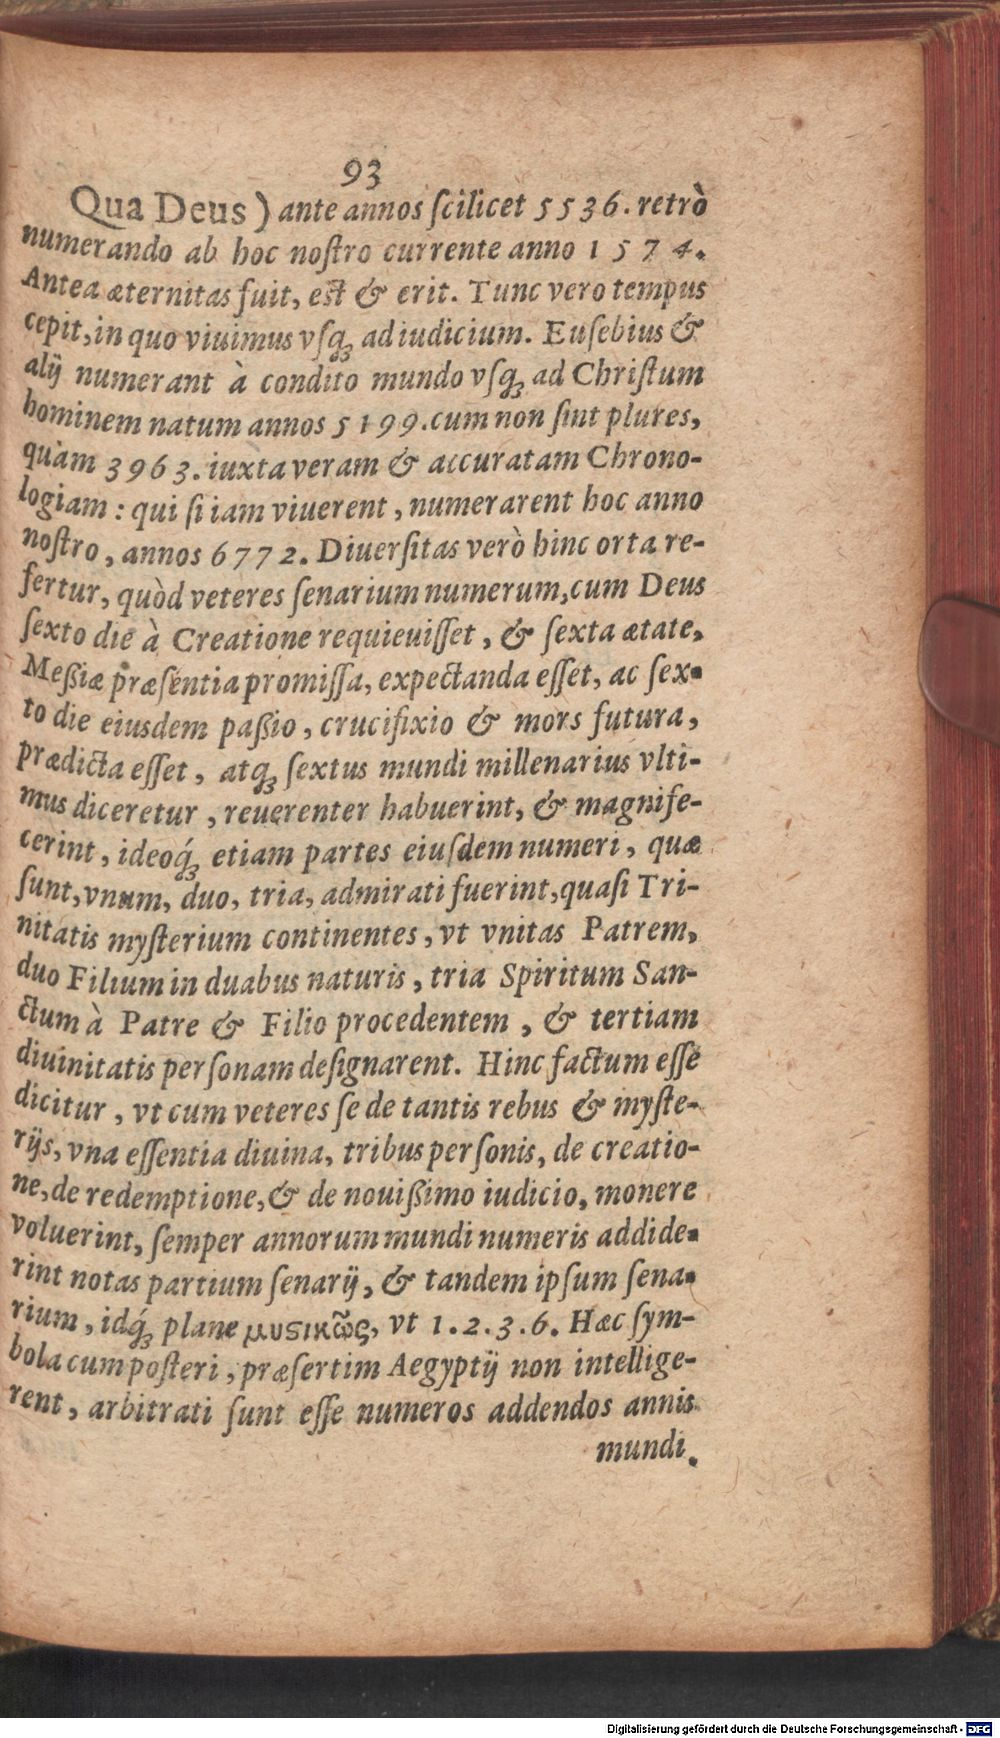 93
Qua Deus) ante annos ſcilicet 5536. retrò
numerando ab hoc noſtro currente anno 1574.
Antea æternitas fuit, eſt & erit. Tunc vero tempus
cepit, in quo viuimus vſq́ꝫ ad iudicium. Euſebius &
alij numerant à condito mundo vſqꝫ ad Chriſtum
hominem natum annos 5199. cum non ſint plures,
quàm 3963. iuxta veram & accuratam Chrono-
logiam : qui ſi iam viuerent, numerarent hoc anno
noſtro, annos 6772. Diuerſitas verò hinc orta re-
fertur, quòd veteres ſenarium numerum, cum Deus
ſexto die à Creatione requieuiſſet, & ſexta ætate,
Meßiæ præſentia promiſſa, expectanda eſſet, ac ſex-
to die eiusdem paßio, crucifixio & mors futura,
prædicta eſſet, atqꝫ ſextus mundi millenarius vlti-
mus diceretur, reuerenter habuerint, & magnife-
cerint, ideoq́ꝫ etiam partes eiuſdem numeri, quæ
ſunt, vnum, duo, tria, admirati fuerint, quaſi Tri-
nitatis myſterium continentes, vt vnitas Patrem,
duo Filium in duabus naturis, tria Spiritum San-
ctum à Patre & Filio procedentem, & tertiam
diuinitatis perſonam deſignarent. Hinc factum eſſe
dicitur, vt cum veteres ſe de tantis rebus & myſte-
rijs, vna eſſentia diuina, tribus perſonis, de creatio-
ne, de redemptione, & de nouißimo iudicio, monere
voluerint, ſemper annorum mundi numeris addide-
rint notas partium ſenarij, & tandem ipſum ſena-
rium, idq́ꝫ plane μυϛικῶς, vt 1. 2. 3. 6. Hæc ſym-
bola cum poſteri, præſertim Aegyptij non intellige-
rent, arbitrati ſunt eſſe numeros addendos annis
mundi.
Digitalisierung gefördert durch die Deutsche Forschungsgemeinschaft - DFG